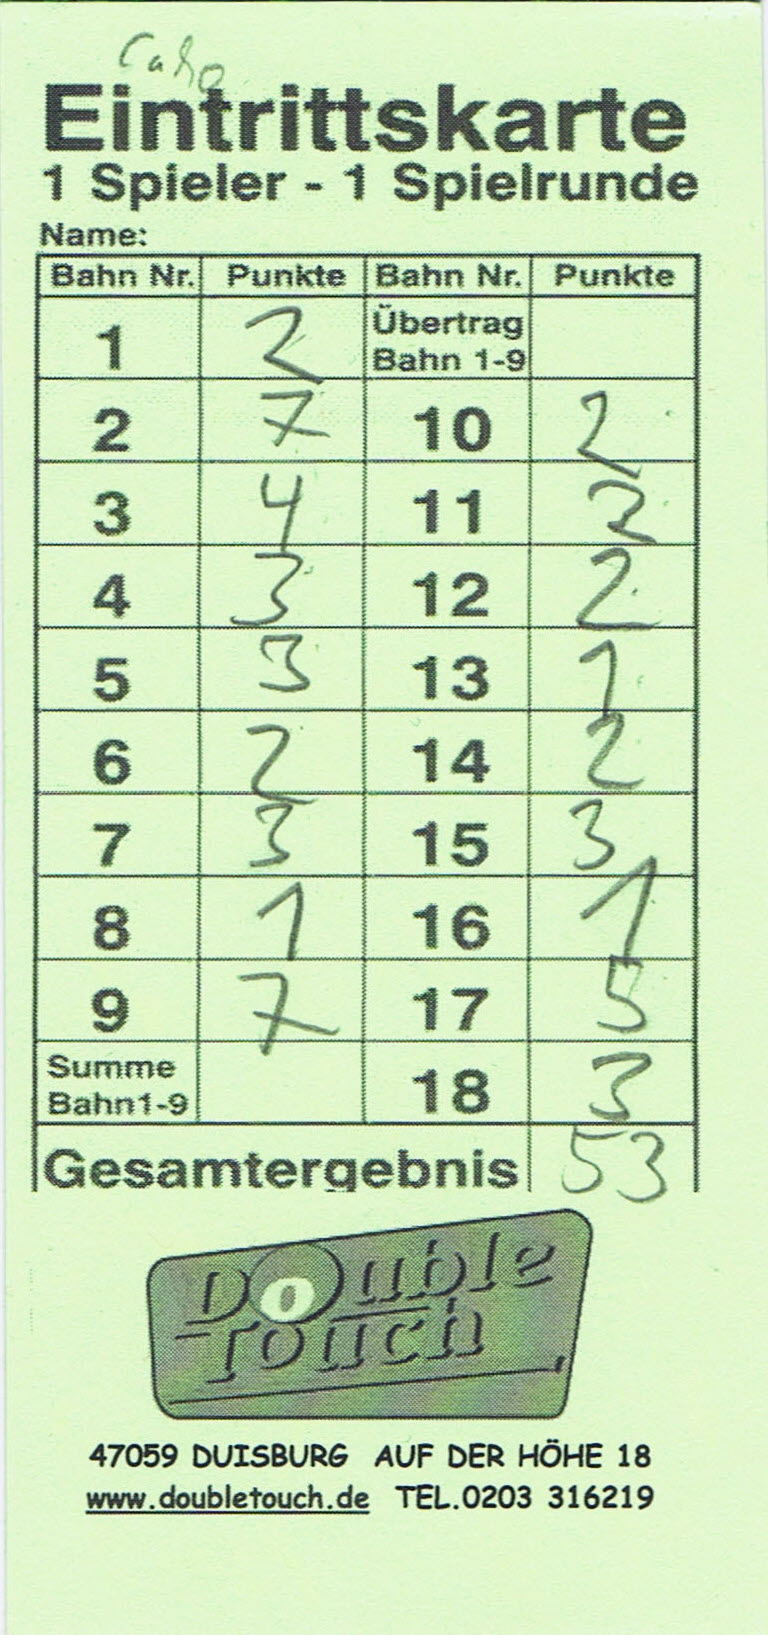 Caro
Eintrittskarte
1 Spieler - 1 Spielrunde
Name:
Bahn Nr. Punkte Bahn Nr. Punkte
1 2 Übertrag Bahn 1-9
2 7 10 2
3 4 11 2
4 3 12 2
5 3 13 1
6 2 14 2
7 3 15 3
8 1 16 1
9 7 17 5
Summe Bahn1-9 18 3
Gesamtergebnis 53
Double
Touch
47059 DUISBURG AUF DER HÖHE 18
www.doubletouch.de TEL.0203 316219